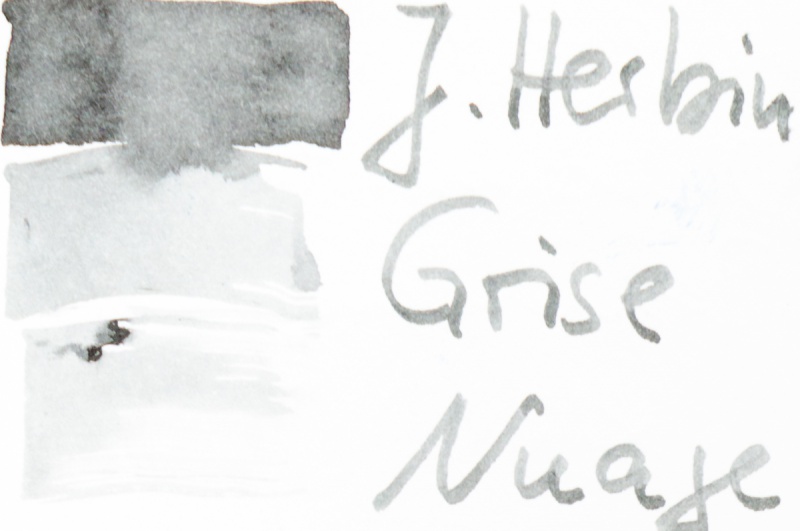 J. Herbin
Grise
Nuage